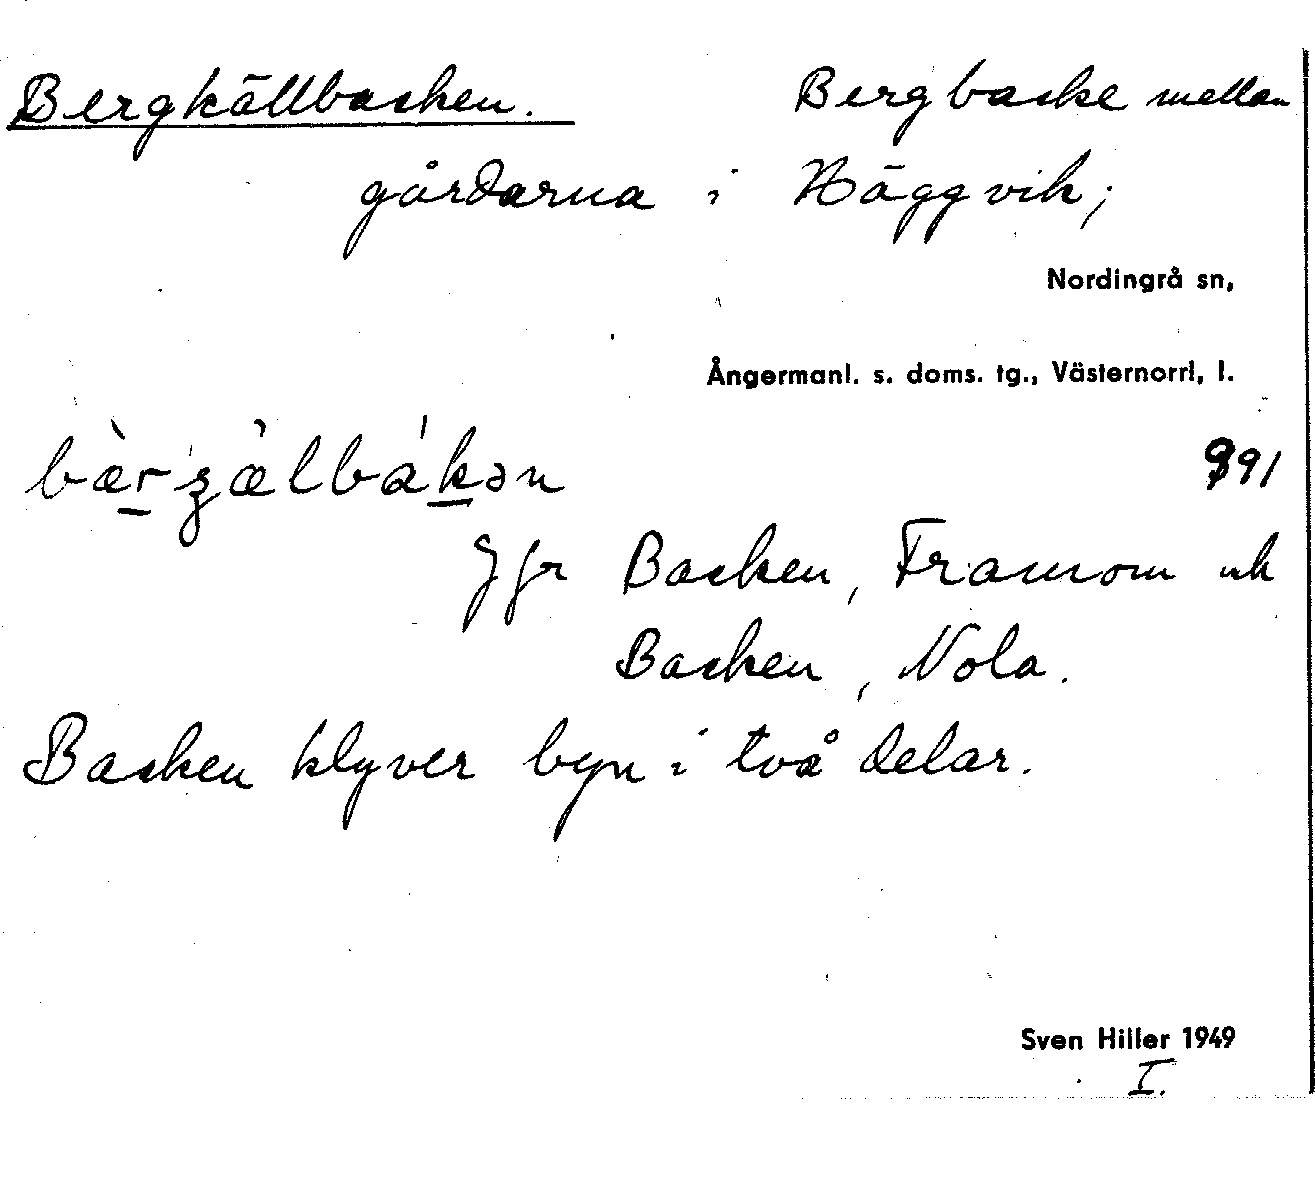 Bergkällbacken. Bergbacke mellan
gårdarna i Häggvik;
Nordingrå sn,
Ångermanl. s. doms. tg., Västernorrl, l.
891
Jfr Backen, Framom och
Backen, Nola.
Backen klyver byn i två delar.
Sven Hiller 1949
I.